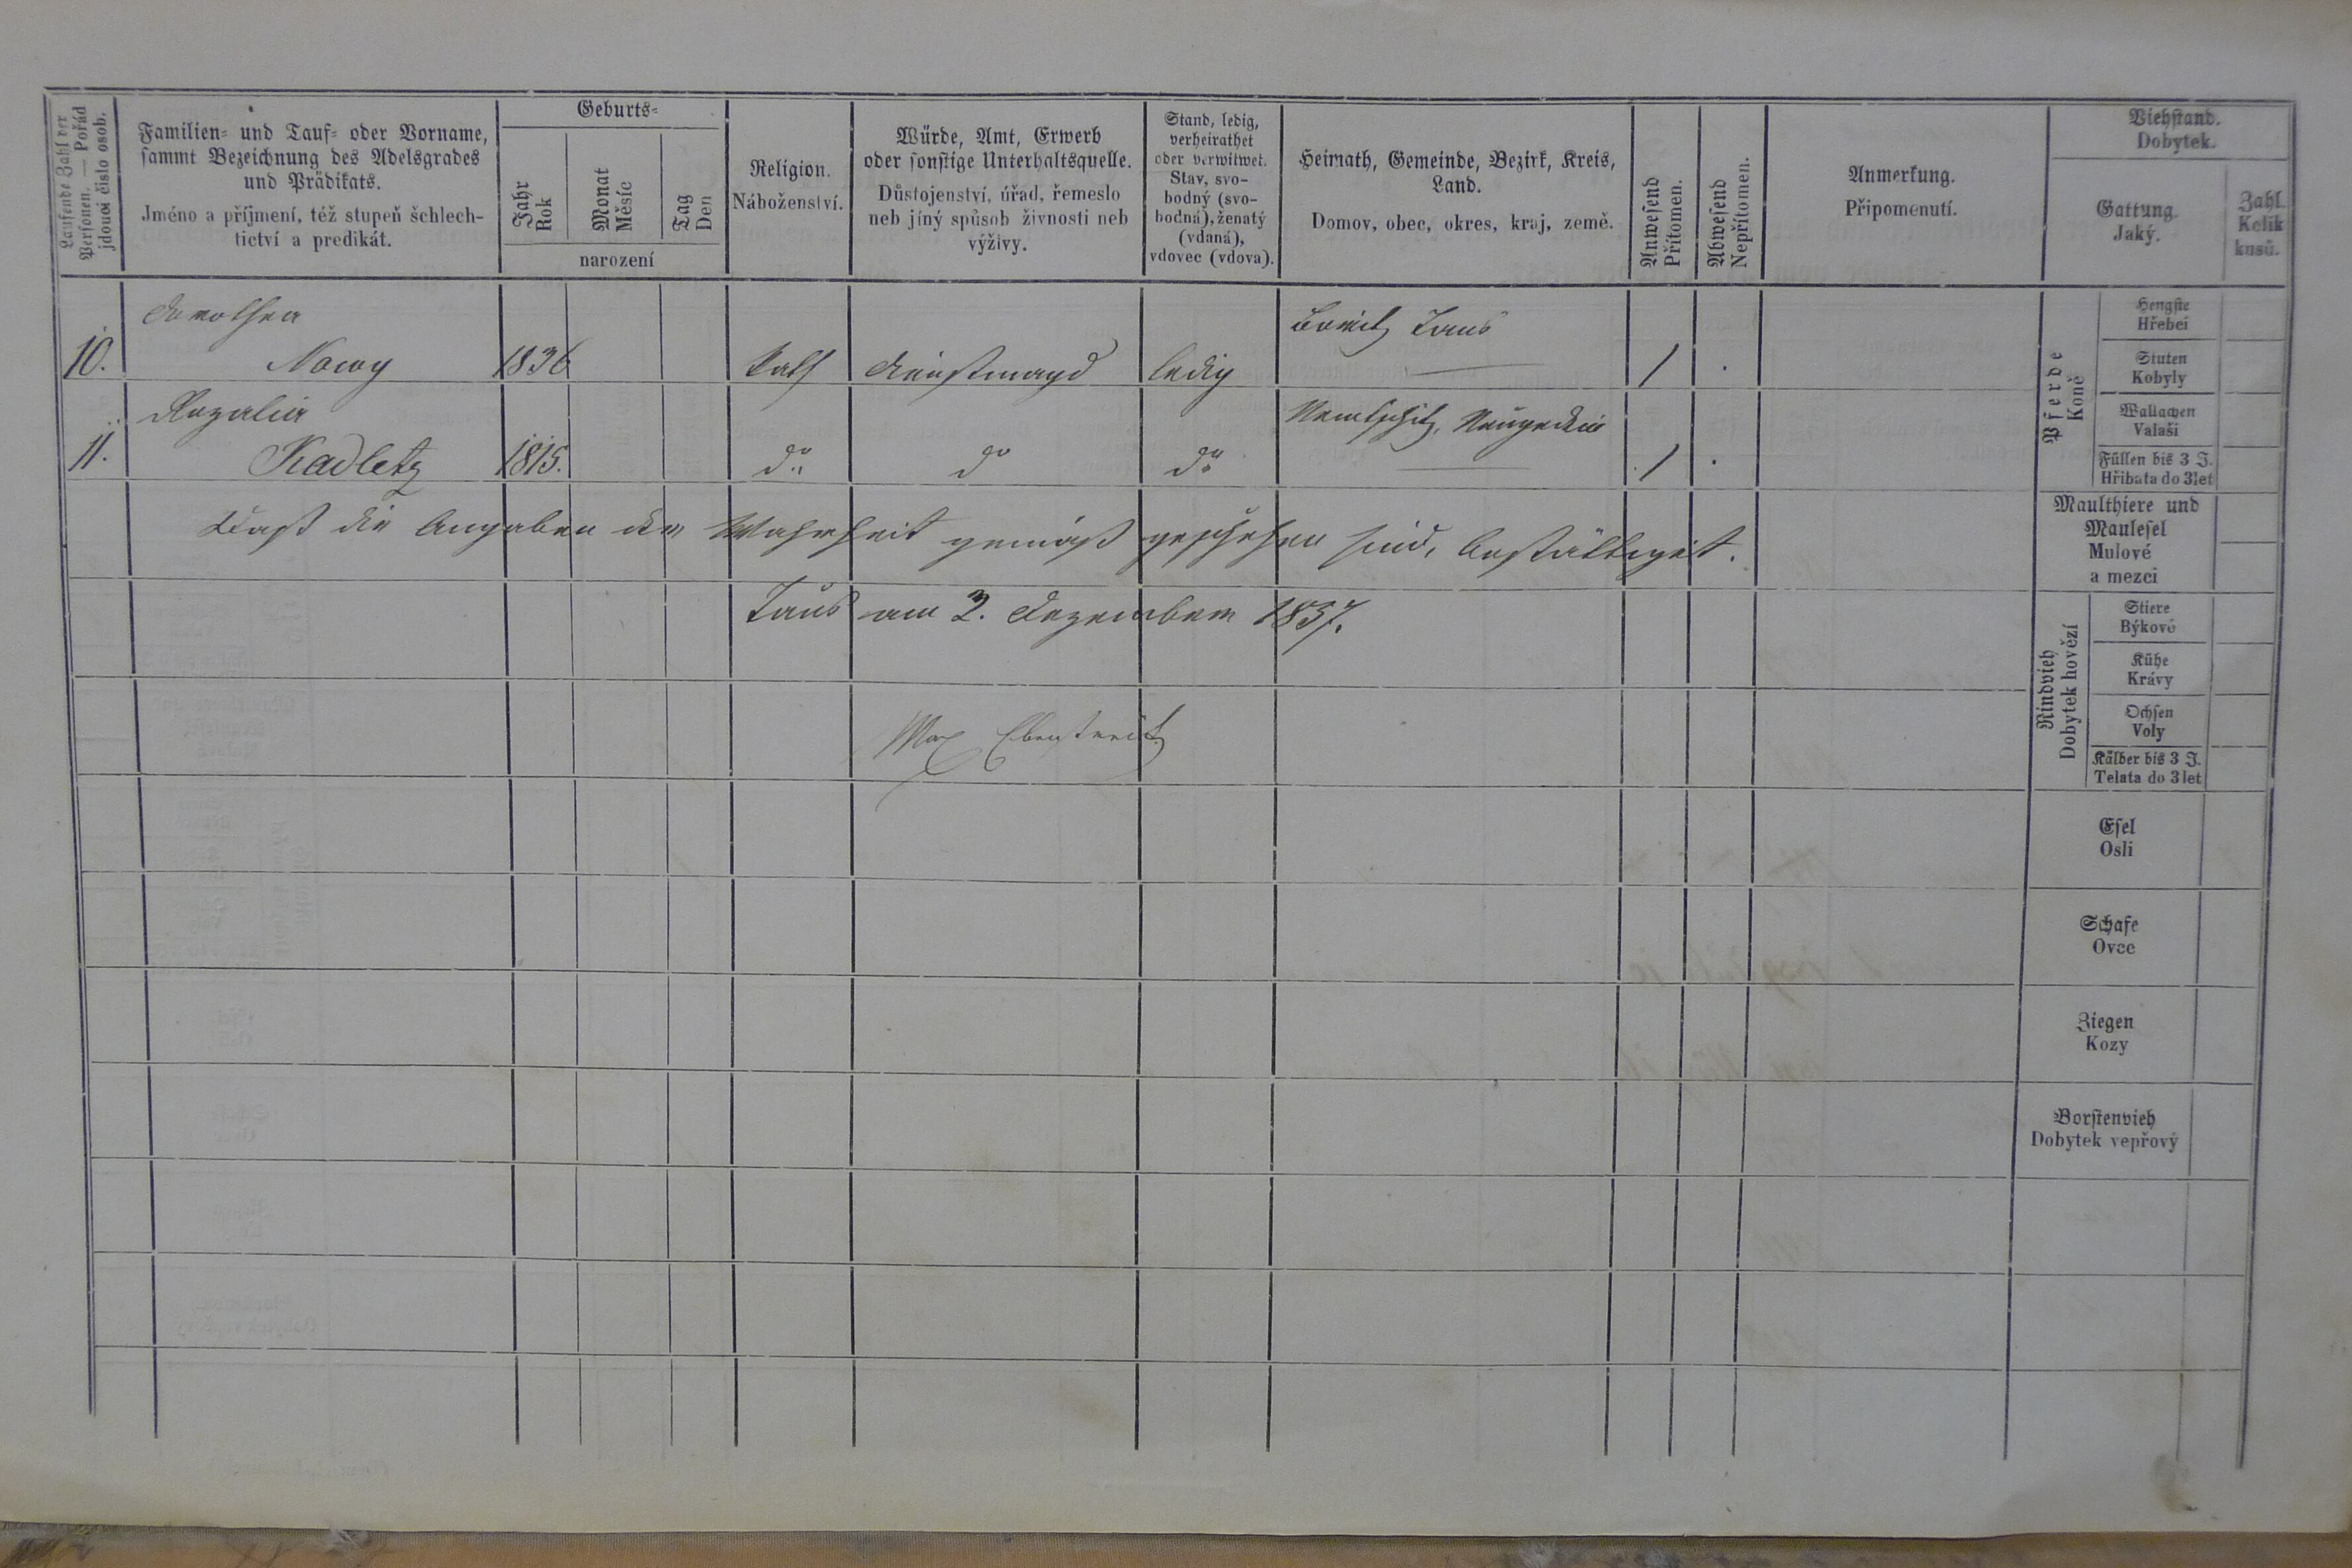 Laufende Zahl der Personen. — Pořád jdoucí číslo osob.
Familien- und Tauf- oder Vorname,
sammt Bezeichnung des Adelsgrades
und Prädikats.
Jméno a příjmení, též stupeň šchlech-
tictví a predikát.
Geburts-
Jahr
Rok
Monat
Měsíc
Tag
Den
narození
Religion.
Náboženství.
Würde, Amt, Erwerb
oder sonstige Unterhaltsquelle.
Důstojenství, úřad, řemeslo
neb jíný spůsob živnosti neb
výživy.
Stand, ledig,
verheirathet
oder verwitwet.
Stav, svo-
bodný (svo-
bodná), ženatý
(vdaná),
vdovec (vdova).
Heimath, Gemeinde, Bezirk, Kreis,
Land.
Domov, obec, okres, kraj, země.
Anwesend
Přítomen.
Abwesend
Nepřítomen.
Anmerkung.
Připomenutí.
Viehstand.
Dobytek.
Gattung
Jaký.
Zahl
Kolik
kusů.
Dorothea
10. Nowy 1836 Kath Dienstmagd ledig Taus / .
Rozalia
11. Kadletz 1815. do do do Nemtschitz, Neugedein / .
Daß die Angaben der Wahrheit gemäß geschehen sind, bestättiget.
Taus am 2. Dezember 1857.
Max
Pferde
Koně
Hengste
Hřebci
Stuten
Kobyly
Wallachen
Valaši
Füllen bis 3 J.
Hříbata do 3 let
Maulthiere und
Maulesel
Mulové
a mezci
Rindvieh
Dobytek hovězí
Stiere
Býkové
Kühe
Krávy
Ochsen
Voly
Kälber bis 3 J.
Telata do 3 let
Esel
Osli
Schafe
Ovce
Ziegen
Kozy
Borstenvieh
Dobytek vepřový